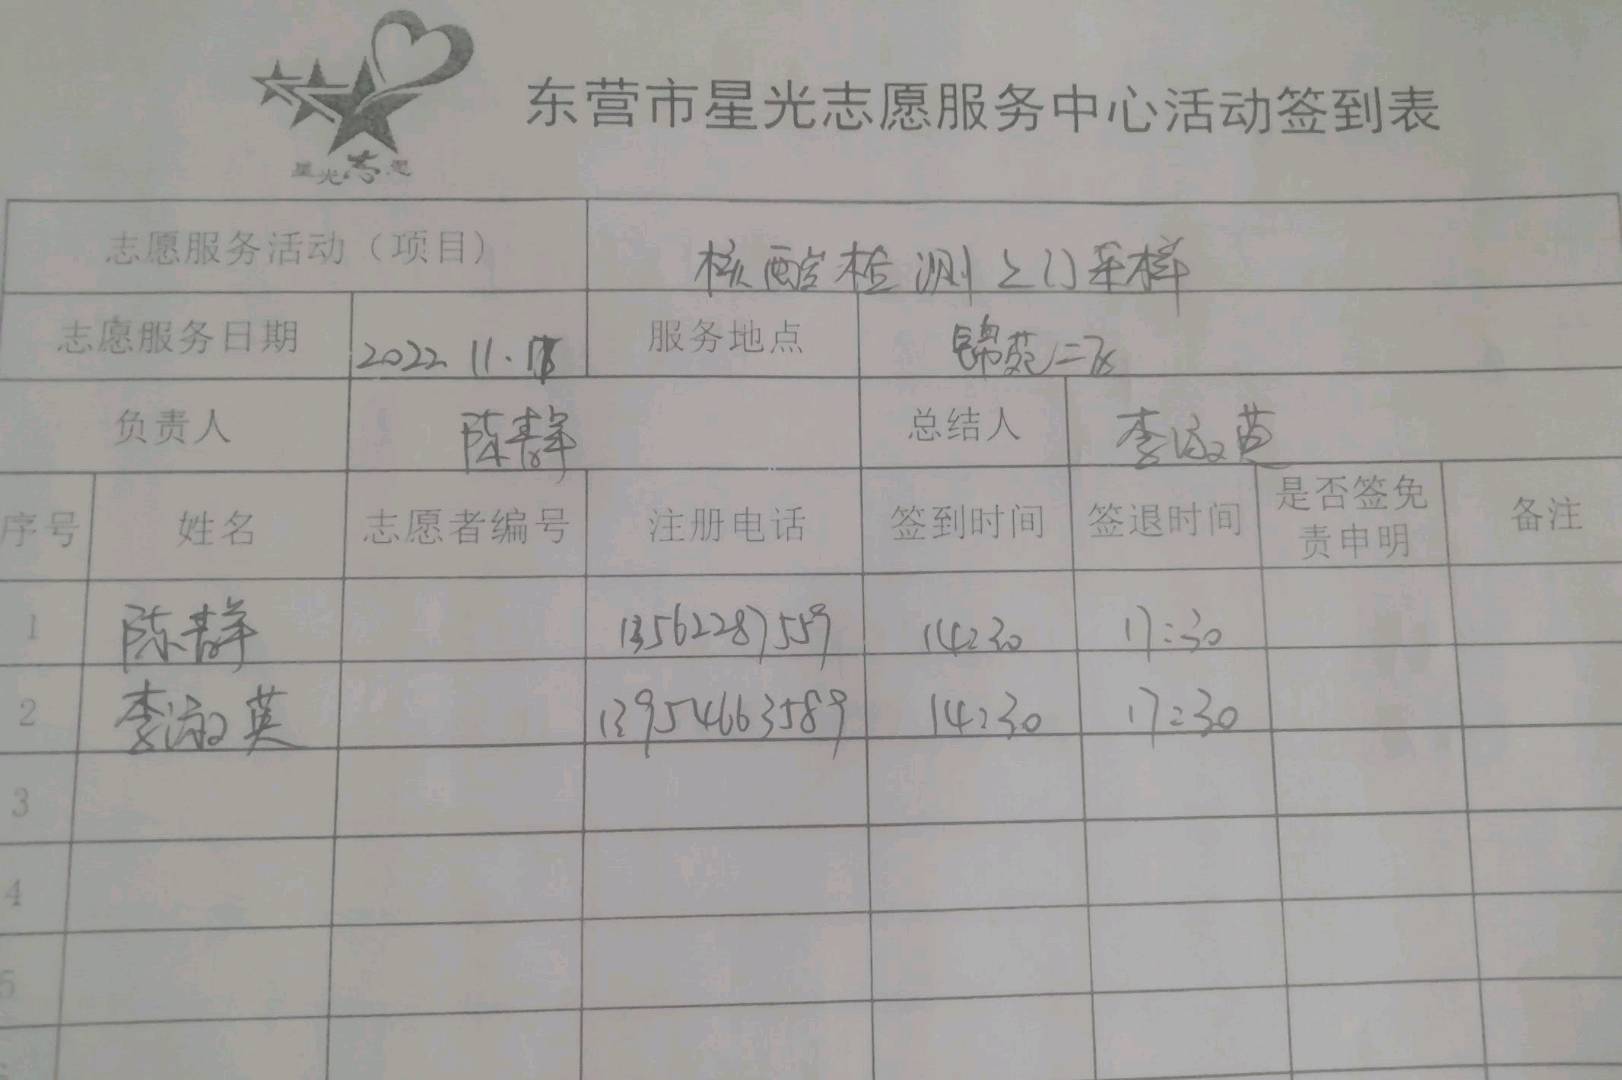 星光志愿
东营市星光志愿服务中心活动签到表
志愿服务活动（项目） 核酸检测上门采样
志愿服务日期 2022 11. 服务地点 锦苑二区
负责人 陈静 总结人 李淑英
序号 姓名 志愿者编号 注册电话 签到时间 签退时间 是否签免责申明 备注
1 陈静 13562287559 14:30 17:30
2 李淑英 13954663589 14:30 17:30
3
4
5